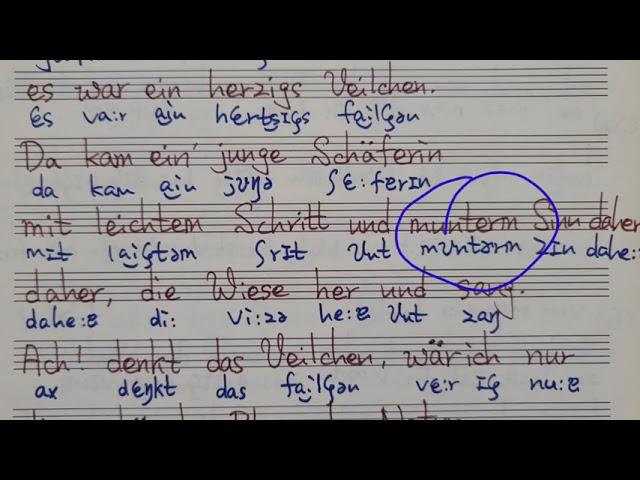 es war ein herzigs Veilchen.
ɛs va:r ain hɛrtsɪçs failçən
Da kam ein' junge Schäferin
da kam ain jʊŋə ʃɛ:fərɪn
mit leichtem Schritt und munterm Sinn daher
mɪt laiçtəm ʃrɪt ʊnt mʊntərm zɪn dahe:ɐ
daher, die Wiese her und sang.
dahe:ɐ di: vi:zə he:ɐ ʊnt zaŋ
Ach! denkt das Veilchen, wär ich nur
ax dɛŋkt das failçən vɛ:r ɪç nu:ɐ